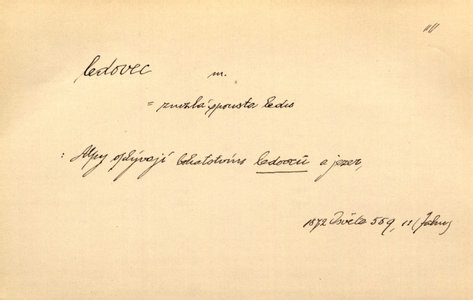 ledovec m.
= spousta ledu
: Alpy oplývají bohatstvím ledovců a jezer,
1872 Osvěta 559,